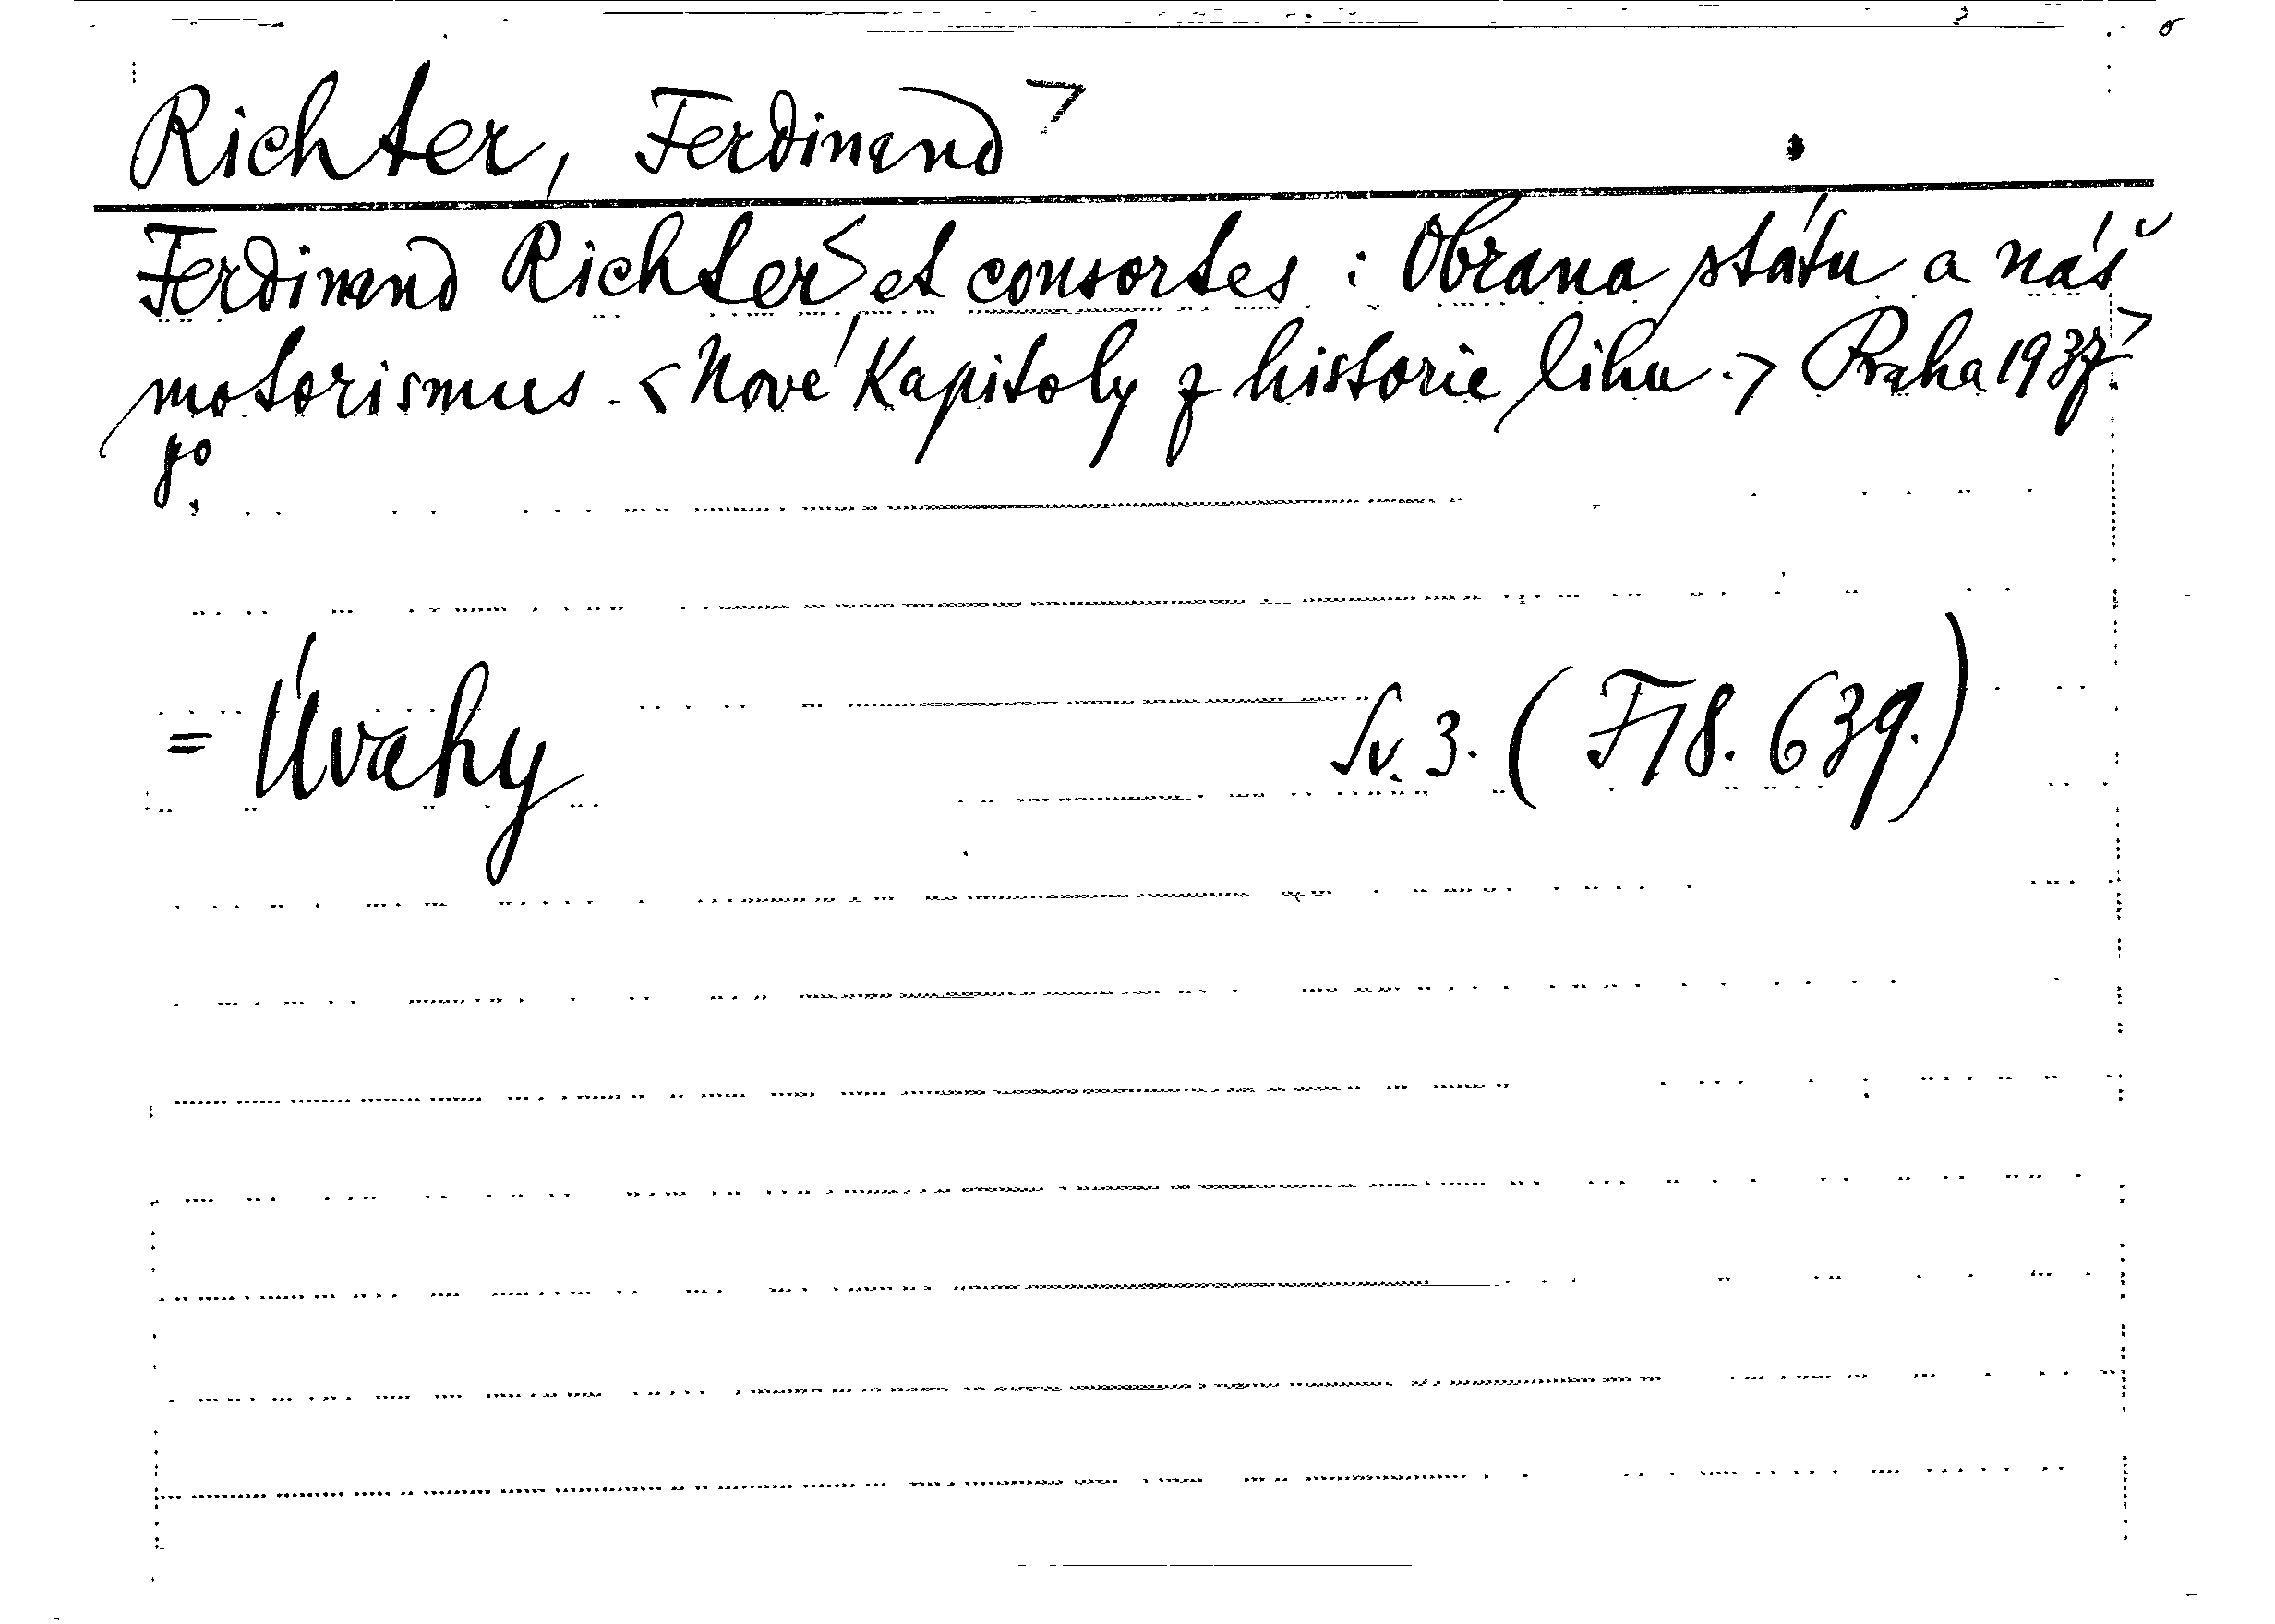 Richter, Ferdinand >
Ferdinand Richter < et consortes : Obrana státu a náš
motorismus. < Nové Kapitoly z historie lihu. > Praha 1937 >
8°
= Úvahy Sv. 3. ( F 18. 639. )